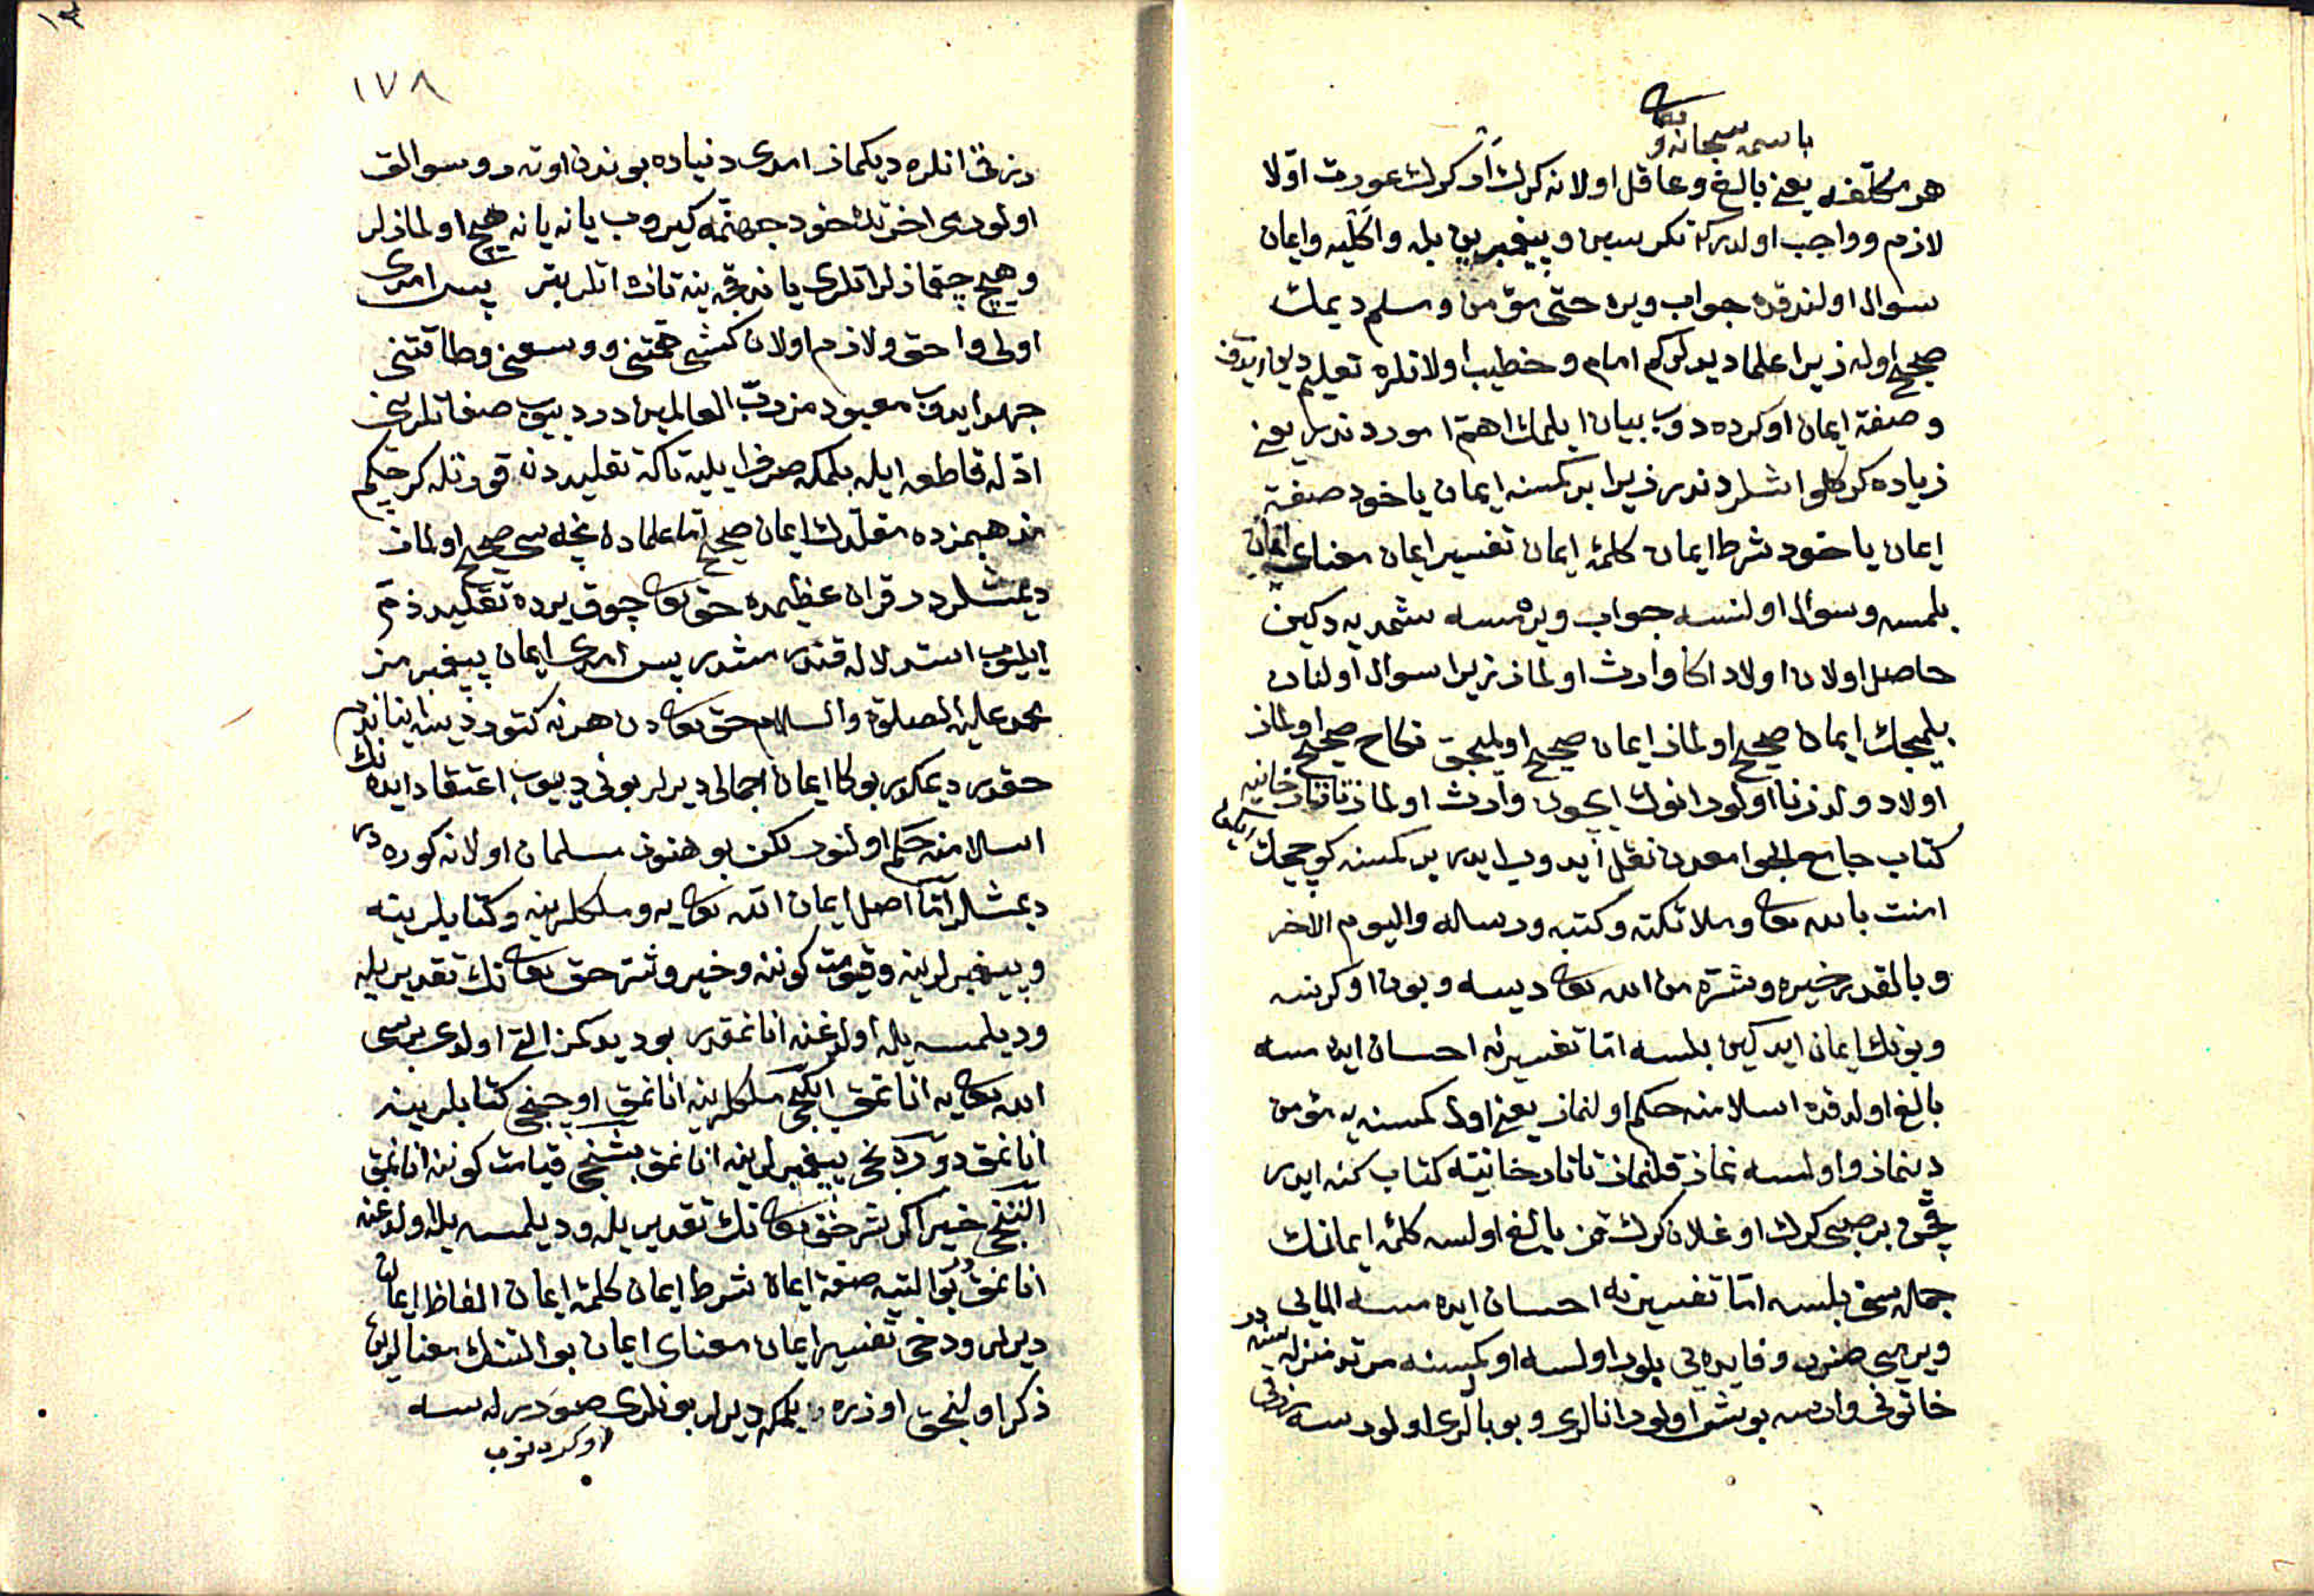 باسمه سبحانه و تعالى
هر مكلفه يعنى بالغ و عاقل اولانه كرك ار كرك عورت اولا
لازم و واجب اولدركه تكرىسين و پيغمبرين بله و اكليه و ايمان
سوال اولندقده جواب ويره حتى مؤمن و مسلم ديمك
صحيح اوله زيرا علما ديدلركم امام و خطيب اولانلره تعليم دين ايدوب
و صفة ايمان اوكرده دوب بيان ايلمك اهم اموردندر يعنى
زياده كركلو اشلردندر زيرا بر كمسنه ايمان ياخود صفة
ايمان ياخود شرط ايمان كلمۀ ايمان تفسير ايمان معناى ايمان
بلمسه و سوال اولنسه جواب ويرهمسه شمديه دكين
حاصل اولان اولاد اكا وارث اولماز زيرا سوال اولنان
بلميجك ايمان صحيح اولماز ايمان صحيح اولميجق نكاح صحيح اولماز
اولاد ولد زنا اولور انوك ايچون وارث اولماز تاتارخانيه
كتاب جامع الجوامعدن نقل ايدوب ايدر بر كمسنه كوچيجك
امنت بالله تعالى و ملائكته و كتبه و رسله واليوم الاخر
و بالقدر خيره و شره من الله تعالى ديسه و بونى اوكرنسه
و بونك ايمان ايدكين بلسه اما تفسيرنه احسان ايدهمسه
بالغ اولدقده اسلامنه حكم اولنماز يعنى اول كمسنه يه مؤمن
دينماز و اولسه نماز قلنماز تاتارخانيه كتاب كنه ايدر
قچن بر صبى كرك اوغلان كرك قز بالغ اولسه كلمۀ ايمانك
جمله سنى بلسه اما تفسيرنه احسان ايدهمسه المالى
ويرمسى ضرر و فايده يى بلور اولسه او كمسنه مرتد منزله سنده در
خاتونى وارسه بوش اولور انالرى و بوبالرى اولورسه
رزقى انلره ديكماز امدى دنياده بوندن اوته رو سوالق
اولودى اخرتده خود جهنمه كيروب يانه يانه هيچ اولمازلر
و هيچ چقمازلر اتلرى ياندقجه ينه تازه اتلر بتر پس امدى
اولى و احق و لازم اولان كشى همتنى و وسعنى و طاقتنى
جهد ايدوب معبودمز رب العالميندر دييوب صفاتلرنى
ادله قاطعه ايله بلمكه صرف ايليه تاكه تقليددن قورتله كرچكم
مذهبمزده مقلدك ايمان صحيح اما علماده نيجه سى صحيح اولماز
ديمشلردر قران عظيمده حق تعالى چوق يرده تقليد ذم
ايليوب استدلاله قندرمشدر پس امدى ايمان پيغمبرمز
محمد عليه الصلوة والسلام حق تعالى دن هر نه كتوردينه ايناندم
حقدر ديمكدر بوكا ايمان اجمالى ديرلر بونى دييوب اعتقاد ايدنك
اسلامنه حكم اولنور لكن بو هنوز مسلمان اولانه كوره در
ديمشلر اما اصل ايمان الله تعالى يه و ملكلرينه و كتابلرينه
و پيغمبرلرينه و قيامت كوننه و خير و شر حق تعالى نك تقديريله
و ديلمسيله اولدغنه انانمقدر بو ديدكمز التى اولدى برسى
الله تعالى يه انانمق ايكنجى ملكلرينه انانمق اوچنجى كتابلرينه
انانمق دوردنجى پيغمبرلرينه انانمق بشنجى قيامت كوننه انانمق
التنجى خير اكر شر حق تعالى نك تقديريله و ديلمسيله اولدغنه
انانمقدر بو التييه صفة ايمان شرط ايمان كلمۀ ايمان الفاظ ايمان
ديرلر و دخى تفسير ايمان معناى ايمان بو التنك معنالرين
ذكر اولنجق اوزره بلمكه ديرلر بونلرى صورلرسه
اوكردنوب
١٧٨